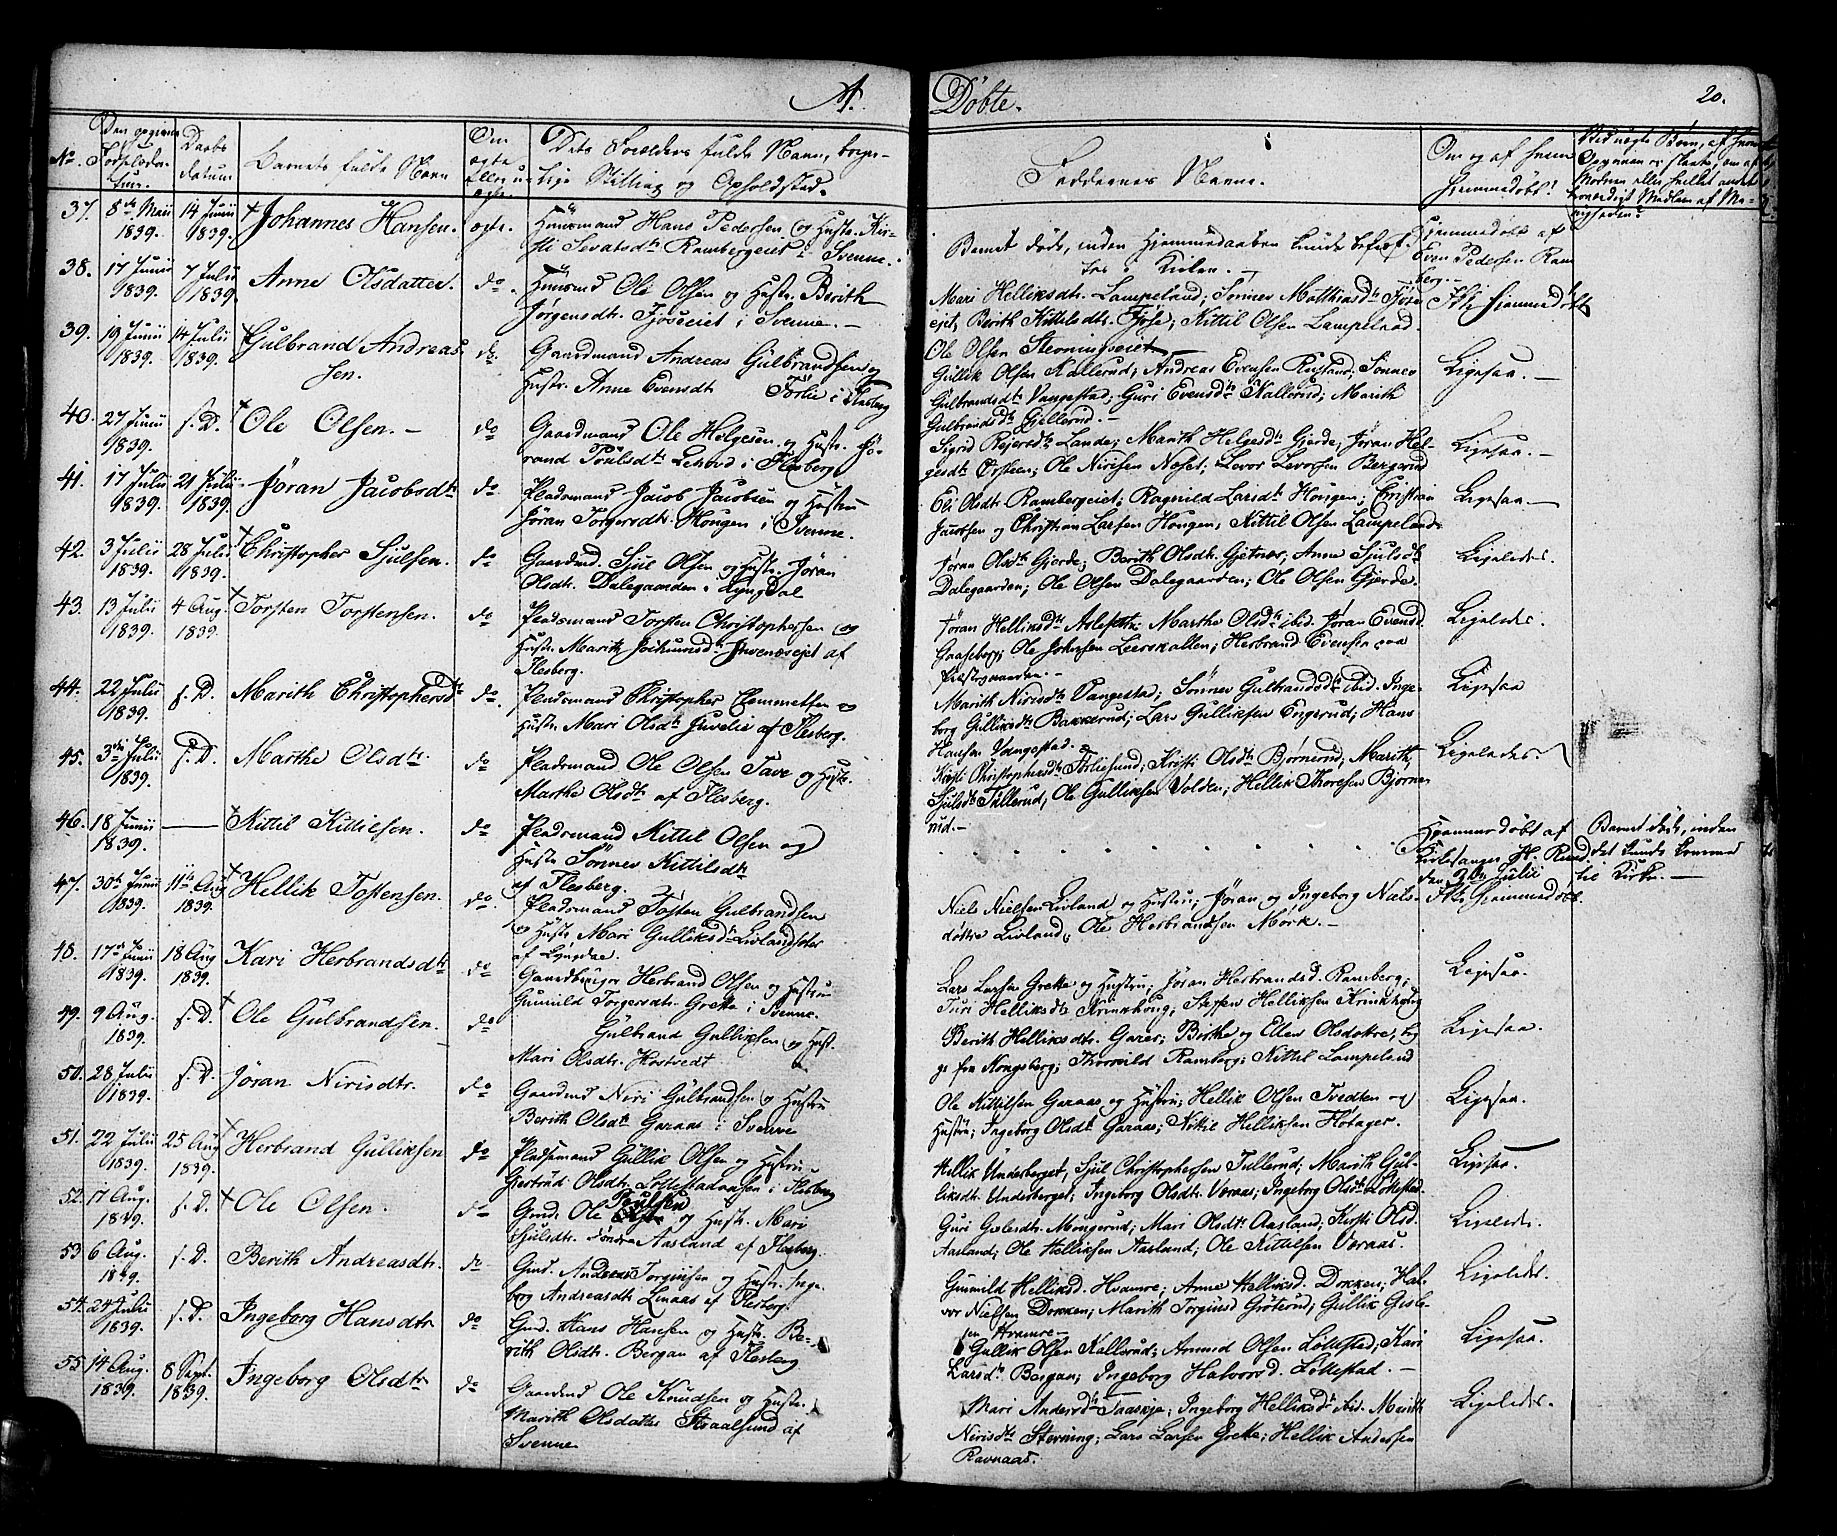 A. Döbte. 20.
No. Den opgivne Fødselsdatum. Daabsdatum Barnets fulde Navn Om ægte eller uægte. Dets Forældres fulde Navn, borgerlige Stilling og Opholdsted. Faddernes Navne. Om og af hvem Hjemmedöbt?
37. 8de Maii 1839. 14 Junii 1839. † Johannes Hansen. ægte. Huusmand Hans Pedersen og Hustr. Kirsti Sevatsdtr Rambergeiet i Svenne.
Barnet døde, inden Hjemmedaaben kunde befæstes i Kirken. — Hjemmedöbt af Even Pedersen Ramberg.
38. 17 Junii 1839. 7 Julii 1839. Anne Olsdatter. do. Huusmd Ole Olsen og Hustr. Berith Jörgensdt. Fjöseeiet i Svenne. —
Mari Helliksdtr. Lampeland; Sönnev Matthiasdtr Fjöseejet, Berith Kittilsdtr. Fjöse; Kittil Olsen Lampeland. Ole Olsen Sterningseiet — Ikke Hjemmedöbt
39. 19 Junii 1839. 14 Julii 1839. † Gulbrand Andreassen. do. Gaardmand Andreas Gulbrandsen og Hustr. Anne Evensdt Torlie i Flesberg
Gullik Olsen Kallerud; Andreas Evensen Rusand; Sönnev Gulbrandsdtr Vangestad; Guri Evensdtr Kallerud; Marith Gulbrandsdtr Gjellerud. — Ligesaa. —
40. 27 Junii 1839. s. D. † Ole Olsen. — do Gaardmand Ole Helgesen og Hustr. Jörand Poulsdtr Lehovd i Flesberg
Sigrid Rejersdtr Lande; Marith Helgesdtr Gjerde; Jöran Helgesdtr Örsteen; Ole Nirisen Noset; Levor Levorsen Bergerud Ligesaa. —
41. 17 Julii 1839. 21 Julii 1839. Jöran Jacobsdtr do Pladsmand Jacob Jacobsen og Hustru Jöran Torgersdtr. Hougen i Svenne.
Eli Olsdtr Rambergeiet; Ragnild Larsdtr Hougen; Christian Jacobsen og Christian Larsen Hougen; Kittil Olsen Lampeland. Ligesaa —
42. 3 Julii 1839. 28 Julii 1839. † Christopher Sjulsen. do Gaardmd. Sjul Olsen og Hustr. Jöran Olsdt. Dalegaarden i Lyngdal
Jöran Olsdtr Gjerde; Berith Olsdtr. Gjetner; Anne Sjulsdtr Dalegaarden; Ole Olsen Dalegaarden; Ole Olsen Gjerde. Ligeledes.
43. 13 Julii 1839. 4 Aug. 1839. † Torsten Torstensen. do Pladsmand Torsten Christophersen og Hustr. Marith af Flesberg.
Jöran Helliksdtr Marthe Olsdtr ibid. Jöran Evensd. Gaaseberg; Ole Johnsen Herbrand Evensen paa Præstegaarden. — Ligeledes.
44. 22 Julii 1839. s. D. Marith Christophersdtr do. Pladsmand Christopher Clemmetsen og Hustr. Mari Olsdtr Juvelie af Flesberg.
Marith Nirisdtr Vangestad; Sönnev Gulbrandsdtr ibid. Ingeborg Gulliksdtr Bakkerud; Lars Gulliksen Engerud; Hans Hansen Vangestad. Ligesaa
45. 3die Julii 1839. s. D. Marthe Olsdtr. do Pladsmand Ole Olsen Tave og Hustr. Marthe Olsdtr af Flesberg.
Kirsti Christophersdtr Kirsti Olsdtr Björnerud; Marith Sjulsdtr Tullerud; Ole Gulliksen Volden; Hellik Thoresen Björnerud. — Ligeledes.
46. 18 Junii 1839. — † Kittil Kittilsen. do Pladsmand Kittil Olsen og Hustr Sönnev Kittilsdtr af Flesberg.
Hjemmedöbt af Kirkesanger H. Ruud den 20 Julii Barnet døde, inden det kunde komme til Kirke. —
47. 30te Junii 1839. 11te Aug 1839. † Hellik Tostensen. do. Pladsmand Tosten Gulbrandsen og Hustr Mari Gulliksdtr af Lyngdal.
Niels Nielsen Livland og Hustru; Jöran og Ingeborg Nielsdöttre Livland; Ole Herbrandsen Mörk. — Ikke Hjemmedöbt.
48. 17de Junii 1839. 18 Aug 1839. Kari Herbrandsdtr do Gaardbruger Herbrand Olsen og Hustru Gunnild Torgersdtr. Grette i Svenne.
Lars Larsen Grette og Hustru; Jöran Herbrandsd. Ramberg; Turi Helliksdtr Steffen Helliksen Ligesaa.
49. 9 Aug. 1839. s. D. † Ole Gulbrandsen. do Gulbrand Gulliksen og Hust. Mari Olsdtr. Hostvedt
Berith Helliksdtr. Garer; Birthe og Ellen Olsdøttre, fra Kongsberg; Thorvild Ramberg; Kittil Lampeland Ligesaa.
50. 28 Julii 1839. s. D. Jöran Nirisdtr. do Gaardmd Niri Gulbrandsen og Hustru Berith Olsdtr Garaas i Svenne
Ole Kittilsen Garaas og Hustru; Hellik Olsen Tvedten og Hustru; Ingeborg Olsdt Garaas; Kittil Helliksen Flötager. Ligesaa.
51. 22 Julii 1839. 25 Aug 1839. † Herbrand Gulliksen do Pladsemand Gullik Olsen og Hustru Gertrud Olsdt. i Flesberg
Hellik Underberget, Sjul Christophersen Tullerud; Marith Gulliksdt Underberget; Ingeborg Olsdtr Voraas; Ingeborg Olsdtr Löttestad. Ligesaa.
52. 17 Aug. 1839. s. D. † Ole Olsen. do Gmd. Ole Poulsen og Hustr. Mari Sjulsdtr. söndre Aasland af Flesberg.
Guri Gislesdtr. Mongerud; Mari Olsdtr Aasland; Kirsti Olsd. Aasland; Ole Helliksen Aasland; Ole Kittilsen Voraas. Ligeleds.
53. 6 Aug. 1839. s. D. Berith Andreasdtr. do Gmd. Andreas Torgrimsen og Hustr. Ingeborg Andreasdtr Linaas af Flesberg
Gunnild Helliksd. Hvamre; Anne Helliksd. Dokken; Halvor Nielsen Dokken; Marith Torgiusd Gröterud; Gullik Gislesen Hvamre — Ligeledes.
54. 24 Julii 1839. s. D. Ingeborg Hansdtr do Gmd. Hans Hansen og Hustr. Berith Olsdtr. Bergan af Flesberg
Gullik Olsen Kallerud; Amund Olsen Löttestad; Kari Larsdtr Bergan; Ingeborg Halvorsd. Löttestad. — Ligesaa.
55. 14 Aug. 1839. 8 Sept. 1839. Ingeborg Olsdtr do Gaardmd Ole Knudsen og Hustr. Marith Olsdatter Straalsund af Svenne
Mari Andersdtr Taaskje; Ingeborg Helliksdtr ibid. Marith Nirisdtr Sterning; Lars Larsen Grette; Hellik Andersen Ravnaas. Ligeledes.